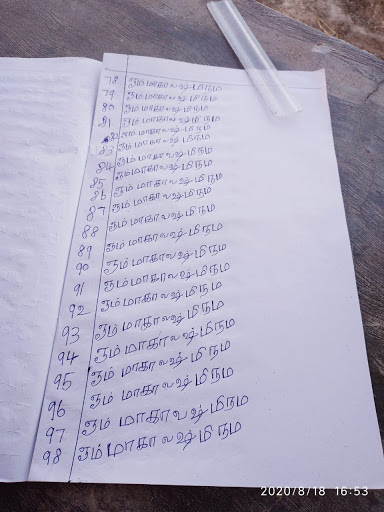 78 ஓம் மாகாலஷ்மி நம
79 ஓம் மாகாலஷ்மி நம
80 ஓம் மாகாலஷ்மி நம
81 ஓம் மாகாலஷ்மி நம
82 ஓம் மாகாலஷ்மி நம
83 ஓம் மாகாலஷ்மி நம
84 ஓம் மாகாலஷ்மி நம
85 ஓம் மாகாலஷ்மி நம
86 ஓம் மாகாலஷ்மி நம
87 ஓம் மாகாலஷ்மி நம
88 ஓம் மாகாலஷ்மி நம
89 ஓம் மாகாலஷ்மி நம
90 ஓம் மாகாலஷ்மி நம
91 ஓம் மாகாலஷ்மி நம
92 ஓம் மாகாலஷ்மி நம
93 ஓம் மாகாலஷ்மி நம
94 ஓம் மாகாலஷ்மி நம
95 ஓம் மாகாலஷ்மி நம
96 ஓம் மாகாலஷ்மி நம
97 ஓம் மாகாலஷ்மி நம
98 ஓம் மாகாலஷ்மி நம
2020/8/18 16:53